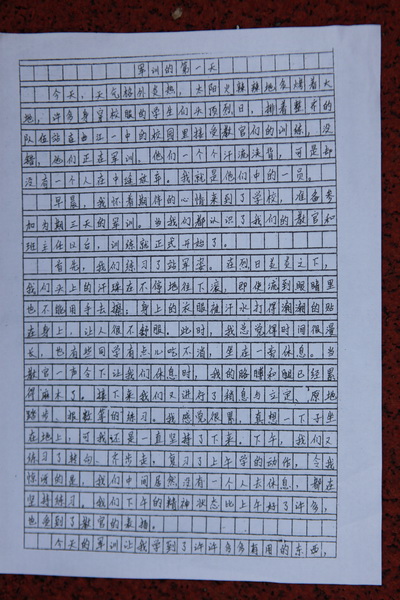 军训的第一天
今天，天气格外炎热，太阳火辣辣地炙烤着大
地，许多身穿校服的学生们头顶烈日，排着整齐的
队伍站在西江一中的校园里接受教官们的训练，没
错，他们正在军训。他们一个个汗流浃背，可是却
没有一个人在中途放弃。我就是他们中的一员。
早晨，我怀着期待的心情来到了学校，准备参
加为期三天的军训。当我们都认识了我们的教官和
班主任以后，训练就正式开始了。
首先，我们练习了站军姿。在烈日炎炎之下，
我们头上的汗珠在不停地往下滚，即使流到眼睛里
也不能用手去擦；身上的衣服被汗水打得潮潮的贴
在身上，让人很不舒服，此时，我总觉得时间很漫
长，也有些同学有点儿吃不消，坐在一旁休息。当
教官一声令下让我们休息时，我的胳膊和腿已经累
得麻木了。接下来我们又进行了稍息与立定、原地
踏步、报数等的练习。我感觉很累，真想一下子坐
在地上，可我还是一直坚持了下来。下午，我们又
练习了转向、齐步走。复习了上午学的动作，令我
惊讶的是，我们中间居然没有一个人去休息，都在
坚持练习。我们下午的精神状态比上午好了许多，
也受到了教官的表扬。
今天的军训让我学到了许许多多有用的东西，